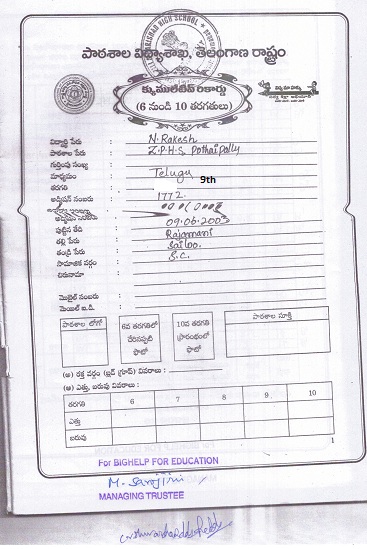 పాఠశాల విద్యాశాఖ, తెలంగాణ రాష్ట్రం
క్యుములేటివ్ రికార్డు
(6 నుండి 10 తరగతులు)
విద్యార్థి పేరు : N. Rakesh
పాఠశాల పేరు : Z.P.H.S Pothaipally
గుర్తింపు సంఖ్య :
మాధ్యమం : Telugu
తరగతి : 9th
అడ్మిషన్ నంబరు : 1772
పుట్టిన తేది : 09.06.2003
తల్లి పేరు : Rajamani
తండ్రి పేరు : Sailoo
సామాజిక వర్గం : S.C.
చిరునామా :
మొబైల్ నంబరు :
మెయిల్ ఐ.డి. :
పాఠశాల లోగో
6వ తరగతిలో చేరినప్పటి ఫొటో
10వ తరగతి ప్రారంభంలో ఫొటో
పాఠశాల సూక్తి
(అ) రక్త వర్గం (బ్లడ్ గ్రూప్) వివరాలు :
(ఆ) ఎత్తు, బరువు వివరాలు :
తరగతి 6 7 8 9 10
ఎత్తు
బరువు
1
For BIGHELP FOR EDUCATION
M. Sarojini
MANAGING TRUSTEE